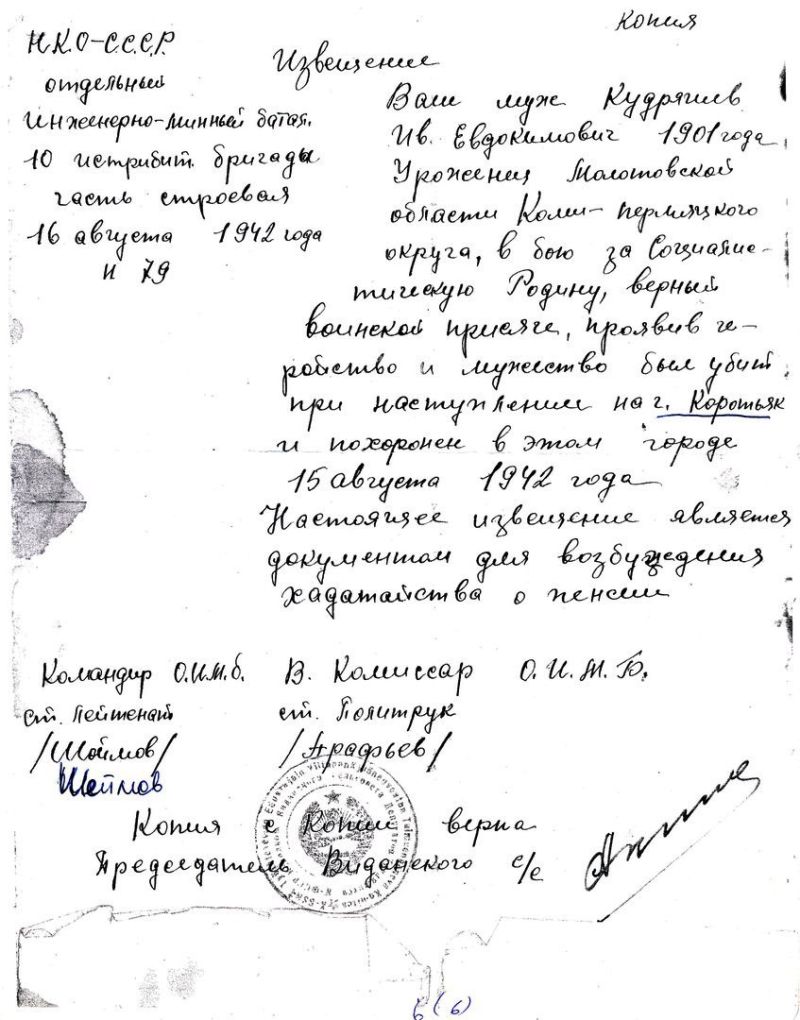 Копия
Н.К.О-С.С.С.Р.
отдельный
инженерно-минный батал.
10 истрибит. бригады
часть строевая
16 августа 1942 года
N 79
Извещение
Ваш муж Кудряшев
Ив. Евдокимович 1901 года
Уроженец Молотовской
области Коми-пермяцкого
округа, в бою за Социалис-
тическую Родину, верный
воинской присяге, проявив ге-
ройство и мужество был убит
при наступлении на г. Коротьяк
и похоронен в этом городе
15 августа 1942 года
Настоящее извещение является
документом для возбуждения
хадатайства о пенсии
Командир О.И.М.б. В. Комиссар О.И.М.Б.
ст. Лейтенат ст. Политрук
/Шоймов/ /Арафьев/
Шеймов
Копия с Копии верна
Председатель Виданского с/с
6(6)